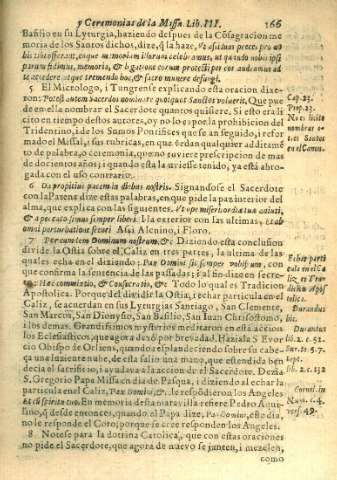 y Ceremonias de la Missa Lib. III. 166
Basilio en su Lyturgia, haziendo despues de la Cõsagracion me
moria de los Santos dichos, dize, q̃ la haze, Vt assiduas preces pro no
bis tibi offerant, eo que memoriam illorum celebramus, ut quando nobis ipsi
fidimus, memoria, & legatione eorum protecti per eos audeamus ad
te accedere atque tremendo hoc, & sacro munere defungi.
5. El Micrologo, i Tungrense explicando esta oracion dixe-
ron: Potest autem Sacerdos nominare quotquot Sanctos voluerit, Que pue
de en ella nombrar el Sacerdote quantos quisiere, Si esto era li
cito en tiempo destos autores, oy no lo es por la prohibicion del
Tridentino, i de los Sumos Pontifices que se an seguido, i refor
mado el Missal, i sus rubricas, en que vedan qualquier additamẽ
to de palabra, o ceremonia, que no tuviere prescripcion de mas
de docientos años; i quando esta la uviesse tenido, ya està abro-
gada con el uso contrario.
6 Da propitius pacem in diebus nostris. Signandose el Sacerdote
con la Patena dize estas palabras, en que pide la paz interior del
alma, que explica con las siguientes. Vt ope misericordiæ tuæ adiuti,
& a peccato simus semper liberi. I la exterior con las ultimas, Et ab
omni perturbatione securi Assi Alcuino, i Floro.
7 Per eundem Dominum nostrum, &c Diziendo esta conclusion
divide la Ostia sobre el Caliz en tres partes, la ultima de las
quales echa en el diziendo: Pax Domini sit semper vobiscum, con
que confirma la sentencia de las passadas; i al fin dize en secre-
to: Hæc commixtio, & Consecratio, &c Todo lo qual es Tradicion
Apostolica. Porque del dividir la Ostia, i echar particula en el
Caliz, se acuerdan en sus Lyturgias Santiago, San Clemente,
San Marcos, San Dionysio, San Basilio, San Iuan Chrisostomo,
i los demas. Grandissimos mysterios meditaron en esta accion
los Eclesiasticos, que agora dexò por brevedad. Haziala S Evor
cio Obispo de Orliens, quando resplandeciendo sobre su cabe-
ça una luziente nube, de esta salia una mano, que estendida ben
decia el sacrificio, i ayudava à la accion del Sacerdote. Dezia
S. Gregorio Papa Missa en dia de Pasqua, i diziendo al echar la
particula en el Caliz, Pax Domini, &c. le respõdieron los Angeles
Et cũ spiritu tuo. En memoria desta maravilla refiere Pedro Aqui
lino, q̃ desde entonces, quando el Papa dize, Pax Domini, este dia,
no le responde el Coro, porque se cree responden los Angeles.
8. Notese para la dotrina Catolica, que con estas oraciones
no pide el Sacerdote, que agora de nuevo se junten, i mezclen,
como
Cap. 23.
Prop. 23.
No es licito
nombrar o-
tros Santos
en el Canon.
Echar parti
cula en el Ca
liz es Tra-
dicion Apos
tolica.
Durandus
lib. 2. c. 52.
sept.
lib. 2. c. 152
Cornel. in
Num. c. 4.
vers. 49.